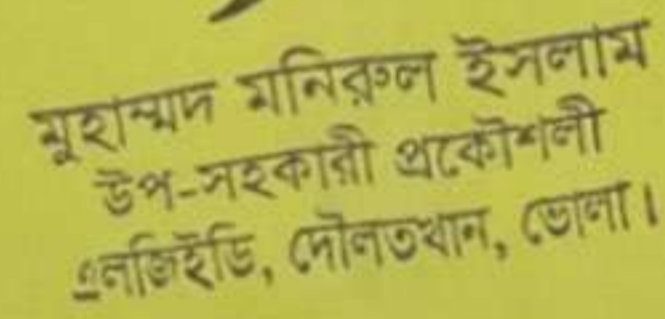 মুহাম্মদ মনিরুল ইসলাম
উপ-সহকারী প্রকৌশলী
এলজিইডি, দৌলতখান, ভোলা।